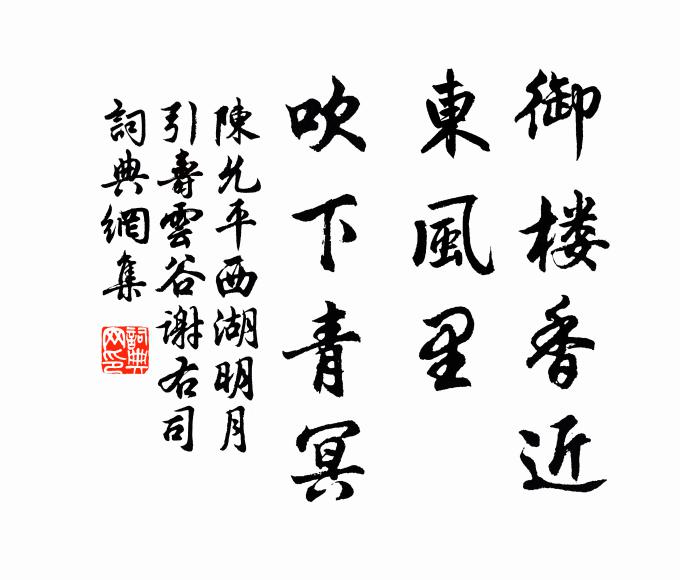 御楼香近
東風里
吹下青冥
陳允平西湖明月
引壽雲谷谢右司
詞典網集
詞典
网印